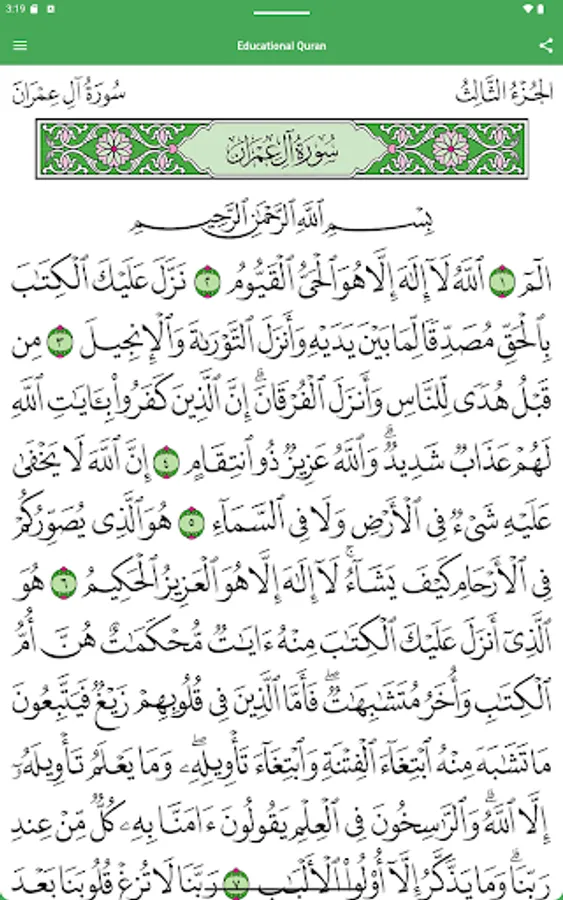 3:19
Educational Quran
الجُزْءُ الثَّالِثُ سُورَةُ آلِ عِمْرَانَ
سُورَةُ آلِ عِمْرَانَ
بِسْمِ ٱللَّهِ ٱلرَّحْمَٰنِ ٱلرَّحِيمِ
الٓمٓ ١ ٱللَّهُ لَآ إِلَٰهَ إِلَّا هُوَ ٱلْحَىُّ ٱلْقَيُّومُ ٢ نَزَّلَ عَلَيْكَ ٱلْكِتَٰبَ
بِٱلْحَقِّ مُصَدِّقًا لِّمَا بَيْنَ يَدَيْهِ وَأَنزَلَ ٱلتَّوْرَىٰةَ وَٱلْإِنجِيلَ ٣ مِن
قَبْلُ هُدًى لِّلنَّاسِ وَأَنزَلَ ٱلْفُرْقَانَۗ إِنَّ ٱلَّذِينَ كَفَرُوا۟ بِـَٔايَٰتِ ٱللَّهِ
لَهُمْ عَذَابٌ شَدِيدٌۗ وَٱللَّهُ عَزِيزٌ ذُو ٱنتِقَامٍ ٤ إِنَّ ٱللَّهَ لَا يَخْفَىٰ
عَلَيْهِ شَىْءٌ فِى ٱلْأَرْضِ وَلَا فِى ٱلسَّمَآءِ ٥ هُوَ ٱلَّذِى يُصَوِّرُكُمْ
فِى ٱلْأَرْحَامِ كَيْفَ يَشَآءُۚ لَآ إِلَٰهَ إِلَّا هُوَ ٱلْعَزِيزُ ٱلْحَكِيمُ ٦ هُوَ
ٱلَّذِىٓ أَنزَلَ عَلَيْكَ ٱلْكِتَٰبَ مِنْهُ ءَايَٰتٌ مُّحْكَمَٰتٌ هُنَّ أُمُّ
ٱلْكِتَٰبِ وَأُخَرُ مُتَشَٰبِهَٰتٌۖ فَأَمَّا ٱلَّذِينَ فِى قُلُوبِهِمْ زَيْغٌ فَيَتَّبِعُونَ
مَا تَشَٰبَهَ مِنْهُ ٱبْتِغَآءَ ٱلْفِتْنَةِ وَٱبْتِغَآءَ تَأْوِيلِهِۦۖ وَمَا يَعْلَمُ تَأْوِيلَهُۥٓ
إِلَّا ٱللَّهُۗ وَٱلرَّٰسِخُونَ فِى ٱلْعِلْمِ يَقُولُونَ ءَامَنَّا بِهِۦ كُلٌّ مِّنْ عِندِ
رَبِّنَاۗ وَمَا يَذَّكَّرُ إِلَّآ أُو۟لُوا۟ ٱلْأَلْبَٰبِ ٧ رَبَّنَا لَا تُزِغْ قُلُوبَنَا بَعْدَ